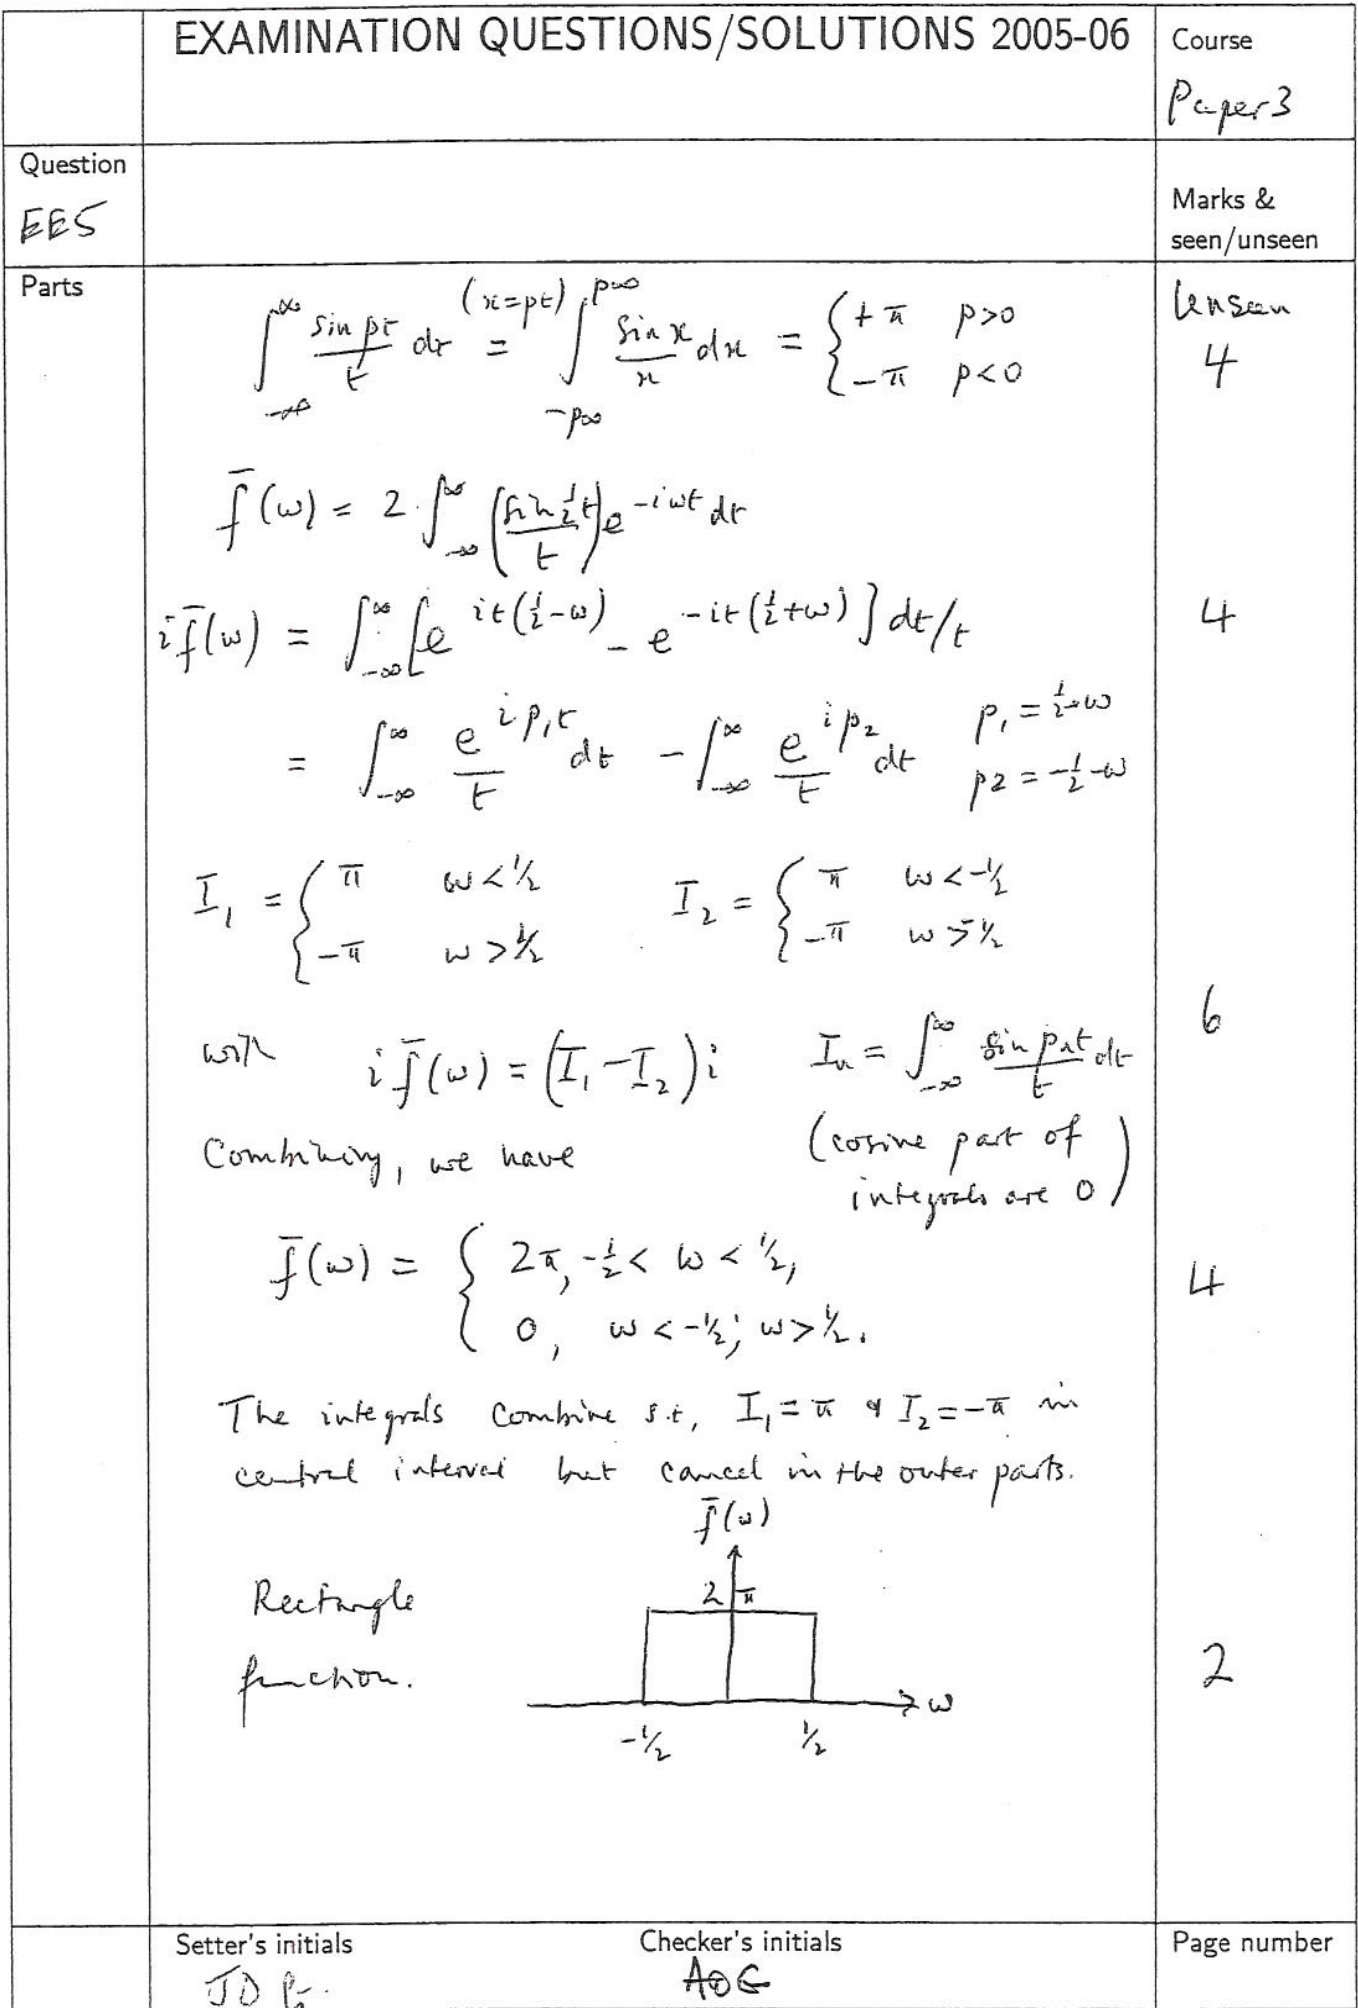 EXAMINATION QUESTIONS/SOLUTIONS 2005-06
Course
Paper 3
Question
EE5
Marks &
seen/unseen
Parts
∫_{-∞}^{∞} sin pt/t dt (x=pt) = ∫_{-p∞}^{p∞} sin x/x dx = { +π p>0
−π p<0
Unseen
4
f̄(ω) = 2 ∫_{-∞}^{∞} (sin ½t/t) e^{-iωt} dt
i f̄(ω) = ∫_{-∞}^{∞} [e^{it(½-ω)} − e^{-it(½+ω)}] dt/t
4
= ∫_{-∞}^{∞} e^{ip₁t}/t dt − ∫_{-∞}^{∞} e^{ip₂}/t dt
p₁ = ½-ω
p2 = -½-ω
I₁ = { π ω < ½
−π ω > ½
I₂ = { π ω < -½
−π ω > -½
6
with i f̄(ω) = (I₁ − I₂) i
Iₙ = ∫_{-∞}^{∞} sin pₙt/t dt
Combining, we have
(cosine part of
integrals are 0)
f̄(ω) = { 2π, -½ < ω < ½,
0, ω < -½; ω > ½.
4
The integrals combine s.t, I₁ = π & I₂ = −π in
central interval but cancel in the outer parts.
f̄(ω)
2π
Rectangle
function.
2
ω
-½
½
Setter's initials
Checker's initials
Page number